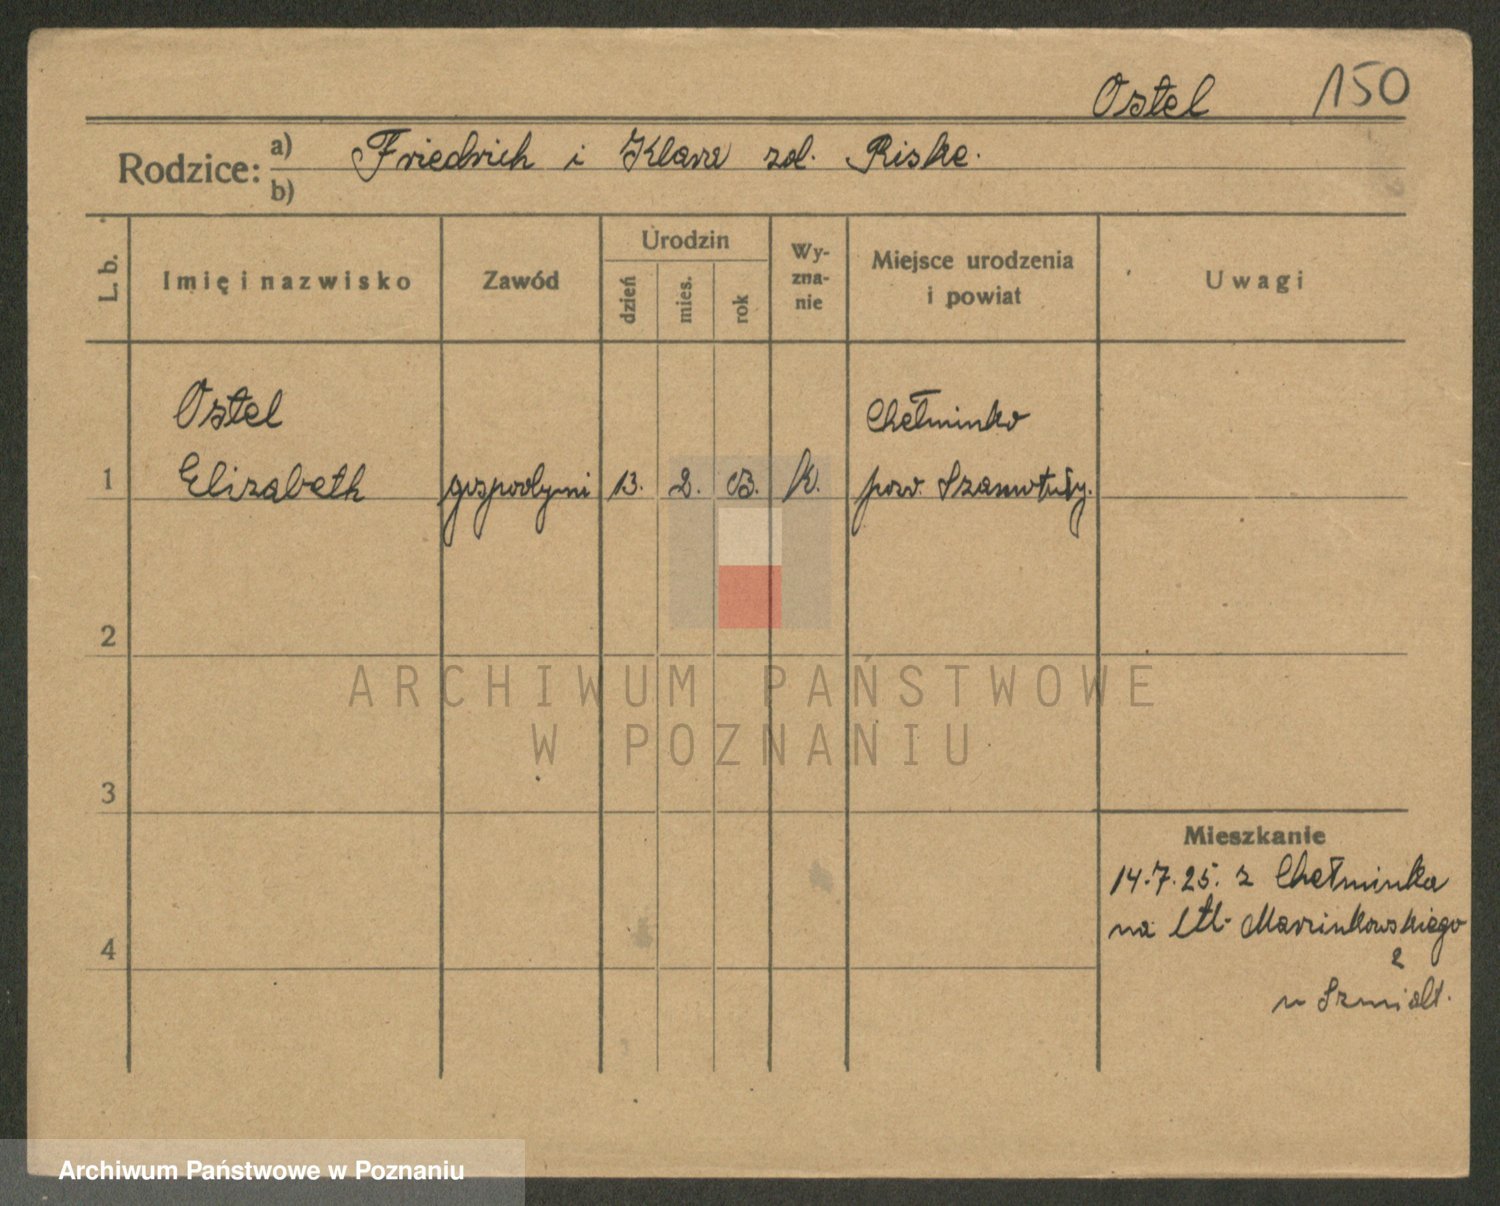 Ostel 150
Rodzice: a) Friedrich i Klara zd. Riske.
b)
L. b.
Imię i nazwisko
Zawód
Urodzin
dzień
mies.
rok
Wy-
zna-
nie
Miejsce urodzenia
i powiat
Uwagi
Ostel
Chełminko
1 Elizabeth gospodyni 13. 2. 03. K. pow. Szamotuły.
2
3
4
Mieszkanie
14.7.25. z Chełminka
na Marcinkowskiego
2
ARCHIWUM PAŃSTWOWE
W POZNANIU
Archiwum Państwowe w Poznaniu